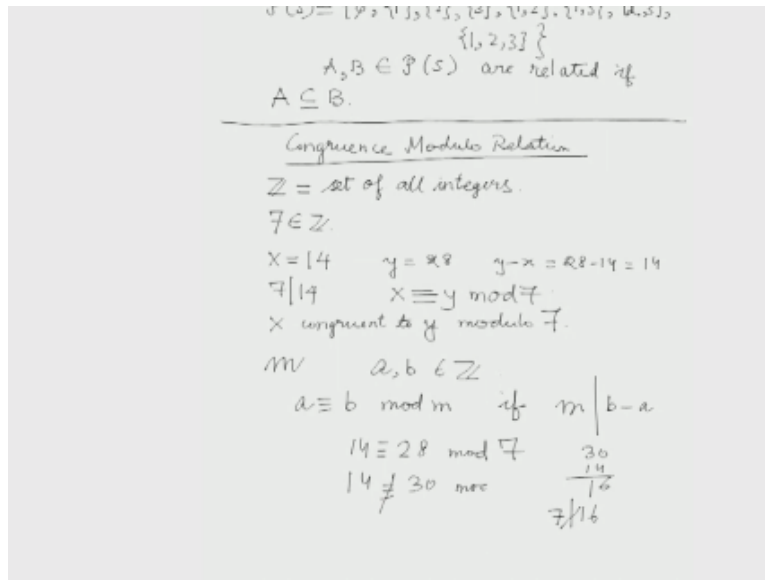 P(S) = {φ, {1}, {2}, {3}, {1,2}, {1,3}, {2,3},
{1,2,3}}
A, B ∈ P(S) are related if
A ⊆ B.
Congruence Modulo Relation
ℤ = set of all integers.
7 ∈ ℤ.
x = 14 y = 28 y-x = 28-14 = 14
7|14 x ≡ y mod 7.
x congruent to y modulo 7.
m a, b ∈ ℤ
a ≡ b mod m if m | b-a
14 ≡ 28 mod 7 30
14
14 ≢ 30 mo 16
7∤16